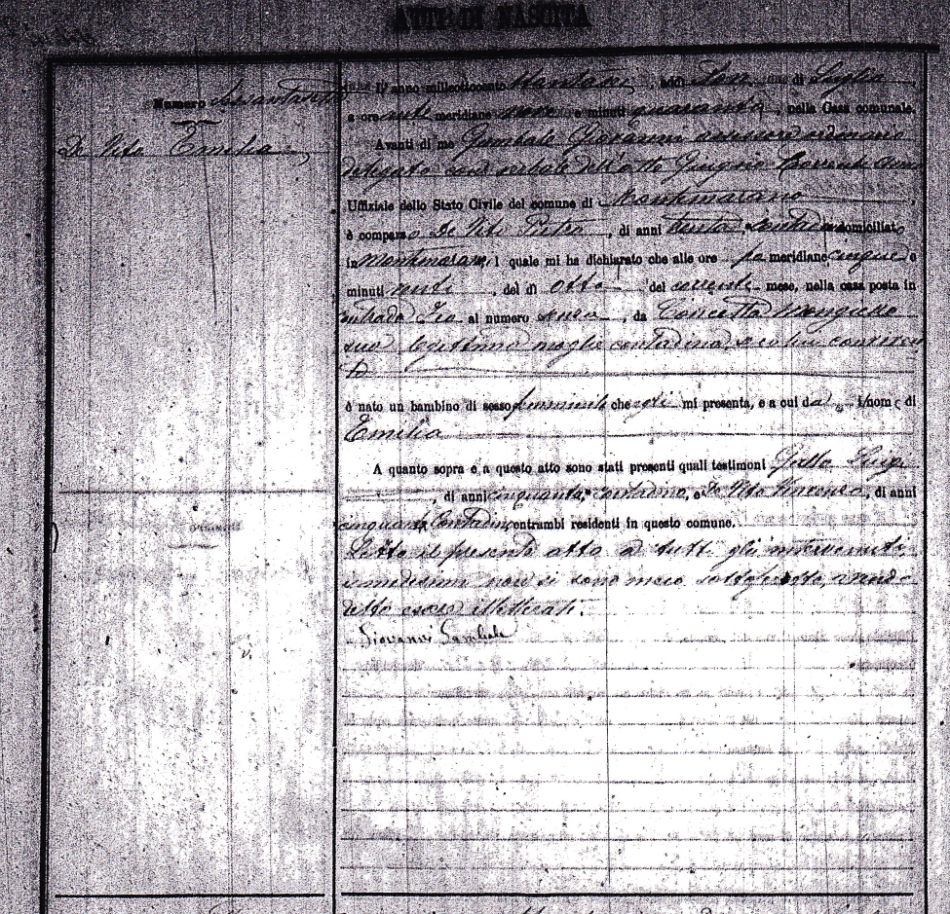 ATTI DI NASCITA
Numero
De Vito Emilia
L'anno milleottocento, addì di Luglio
a ore anti meridiane nove e minuti quaranta, nella Casa comunale.
Avanti di me Gambale Giovanni assessore ordinario
delegato con verbale dell'otto Giugno Corrente anno
Uffiziale dello Stato Civile del comune di Montemarano,
è comparso De Vito Pietro, di anni trenta, domiciliato
in Montemarano, il quale mi ha dichiarato che alle ore meridiane cinque e
minuti venti, del dì otto del corrente mese, nella casa posta in
Contrada al numero senza, da Concetta
sua legittima moglie contadina seco lui convivente
è nato un bambino di sesso femminile che egli mi presenta, e a cui dà il nome di
Emilia
A quanto sopra e a questo atto sono stati presenti quali testimoni Gallo Luigi
, di anni cinquanta, contadino, e De Vito Vincenzo, di anni
cinquanta, Contadino, entrambi residenti in questo comune.
Letto il presente atto a tutti gli intervenuti
i medesimi non si sono meco sottoscritti, avendo
detto essere illetterati.
Giovanni Gambale